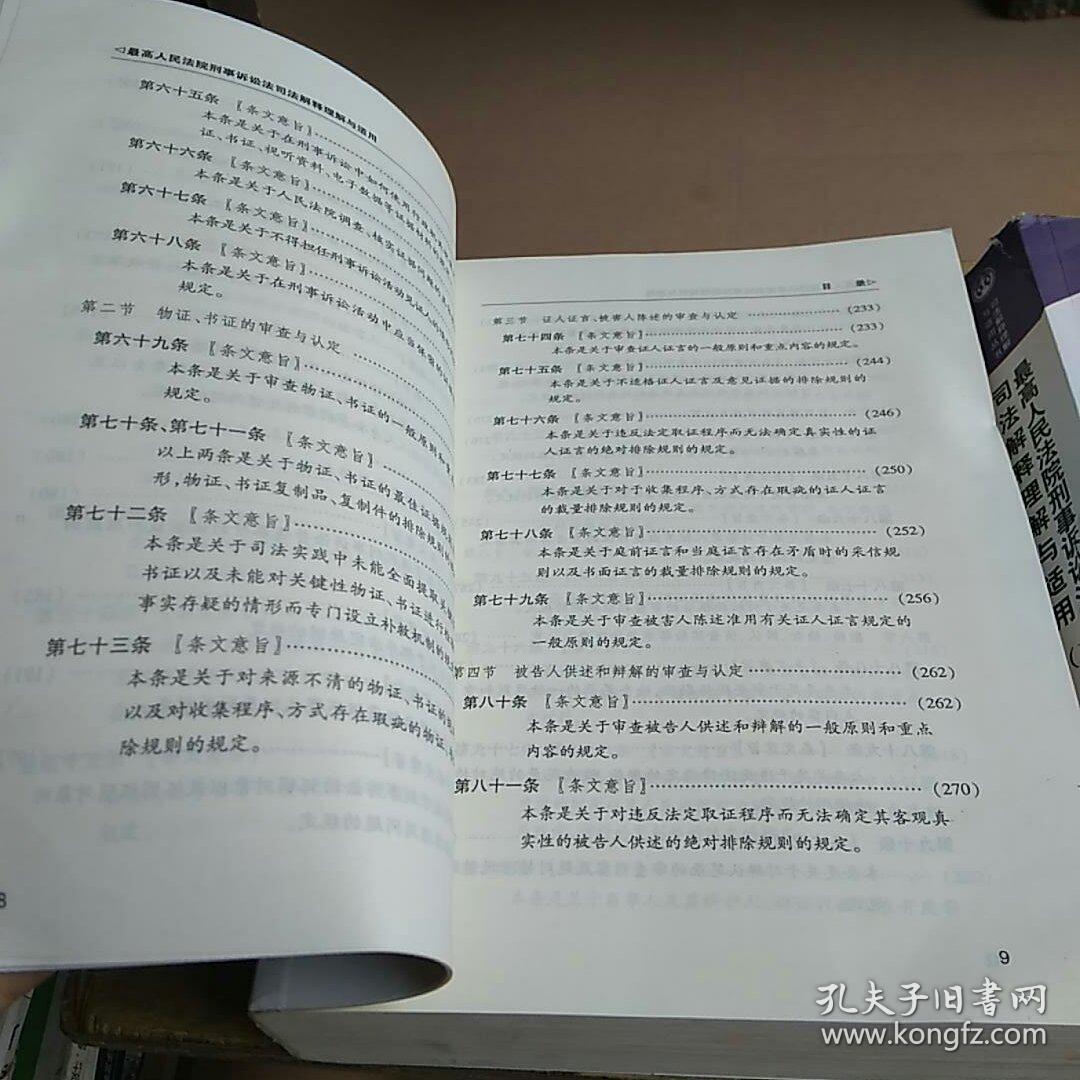 ◁最高人民法院刑事诉讼法司法解释理解与适用
第六十五条 〖条文意旨〗……………
本条是关于在刑事诉讼中如何使用行政
证、书证、视听资料、电子数据等证据材料
第六十六条 〖条文意旨〗……………
本条是关于人民法院调查、核实证据问题的
第六十七条 〖条文意旨〗……………
本条是关于不得担任刑事诉讼活动见证人的
第六十八条 〖条文意旨〗……………
本条是关于在刑事诉讼活动中应当保密的
规定。
第二节 物证、书证的审查与认定 ……………
第六十九条 〖条文意旨〗……………
本条是关于审查物证、书证的一般原则和
规定。
第七十条、第七十一条 〖条文意旨〗……………
以上两条是关于物证、书证的最佳证据规
形,物证、书证复制品、复制件的排除规则
第七十二条 〖条文意旨〗……………
本条是关于司法实践中未能全面提取关
书证以及未能对关键性物证、书证进行
事实存疑的情形而专门设立补救机制的
第七十三条 〖条文意旨〗……………
本条是关于对来源不清的物证、书证的
以及对收集程序、方式存在瑕疵的物证、
除规则的规定。
8
目 录▷
第三节 证人证言、被害人陈述的审查与认定 …………… (233)
第七十四条 〖条文意旨〗…………… (233)
本条是关于审查证人证言的一般原则和重点内容的规定。
第七十五条 〖条文意旨〗…………… (244)
本条是关于不适格证人证言及意见证据的排除规则的
规定。
第七十六条 〖条文意旨〗…………… (246)
本条是关于违反法定取证程序而无法确定真实性的证
人证言的绝对排除规则的规定。
第七十七条 〖条文意旨〗…………… (250)
本条是关于对于收集程序、方式存在瑕疵的证人证言
的裁量排除规则的规定。
第七十八条 〖条文意旨〗…………… (252)
本条是关于庭前证言和当庭证言存在矛盾时的采信规
则以及书面证言的裁量排除规则的规定。
第七十九条 〖条文意旨〗…………… (256)
本条是关于审查被害人陈述准用有关证人证言规定的
一般原则的规定。
第四节 被告人供述和辩解的审查与认定 …………… (262)
第八十条 〖条文意旨〗…………… (262)
本条是关于审查被告人供述和辩解的一般原则和重点
内容的规定。
第八十一条 〖条文意旨〗…………… (270)
本条是关于对违反法定取证程序而无法确定其客观真
实性的被告人供述的绝对排除规则的规定。
9
最高人民法院刑事诉讼法
司法解释理解与适用
孔夫子旧书网
www.kongfz.com